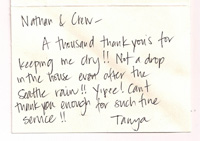 Nathan & Crew-
A thousand thank you's for
keeping me dry!! Not a drop
in the house even after the
Seattle rain!! Yipee! Can't
thank you enough for such fine
service!!
Tanya